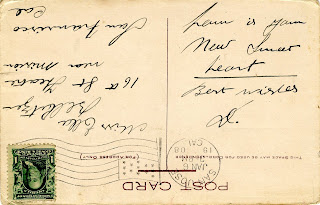 POST CARD
THIS SPACE MAY BE USED FOR CORRESPONDENCE
(FOR ADDRESS ONLY)
SAN JOSE
JAN 6
CAL
Miss Ella
16th St Theatre
near Mission
San Francisco
Cal
is your
New
heart
Best wishes
D.